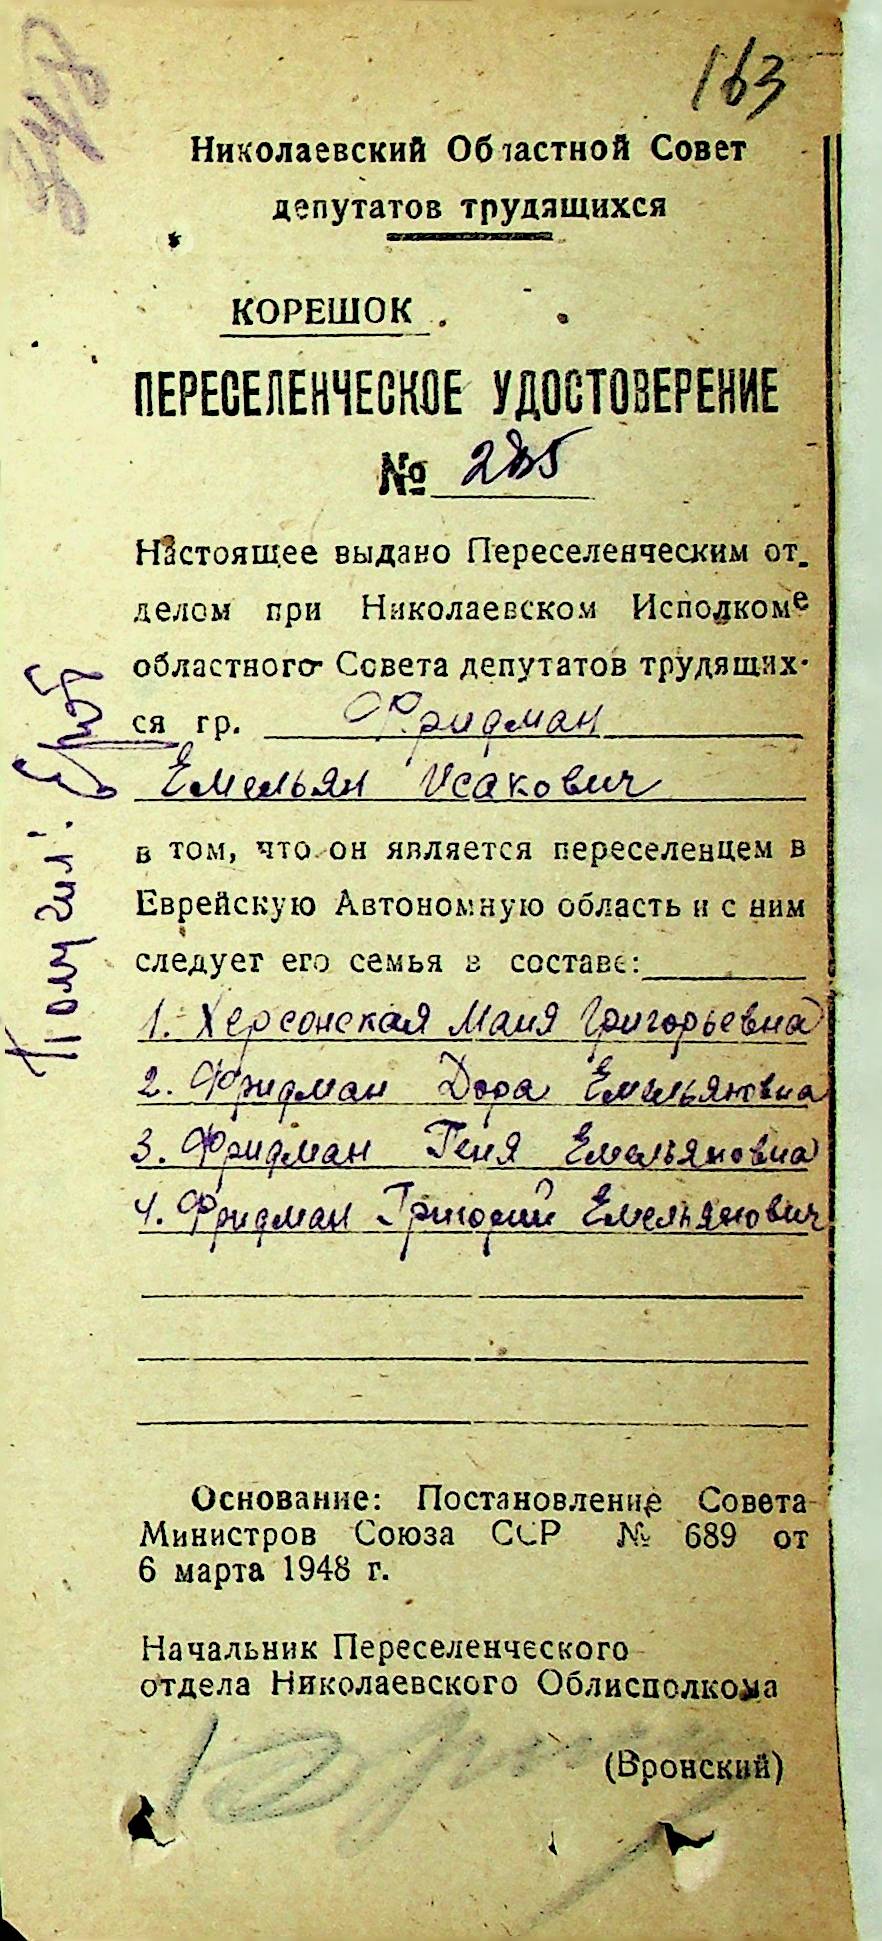 163
Николаевский Областной Совет
депутатов трудящихся
КОРЕШОК
ПЕРЕСЕЛЕНЧЕСКОЕ УДОСТОВЕРЕНИЕ
№ 285
Настоящее выдано Переселенческим от-
делом при Николаевском Исполкоме
областного Совета депутатов трудящих-
ся гр. Фридман
Емельян Исакович
в том, что он является переселенцем в
Еврейскую Автономную область и с ним
следует его семья в составе:
1. Херсонская Маня Григорьевна
2. Фридман Дора Емельяновна
3. Фридман Геня Емельяновна
4. Фридман Григорий Емельянович
Основание: Постановление Совета
Министров Союза ССР № 689 от
6 марта 1948 г.
Начальник Переселенческого
отдела Николаевского Облисполкома
(Вронский)
Получил: